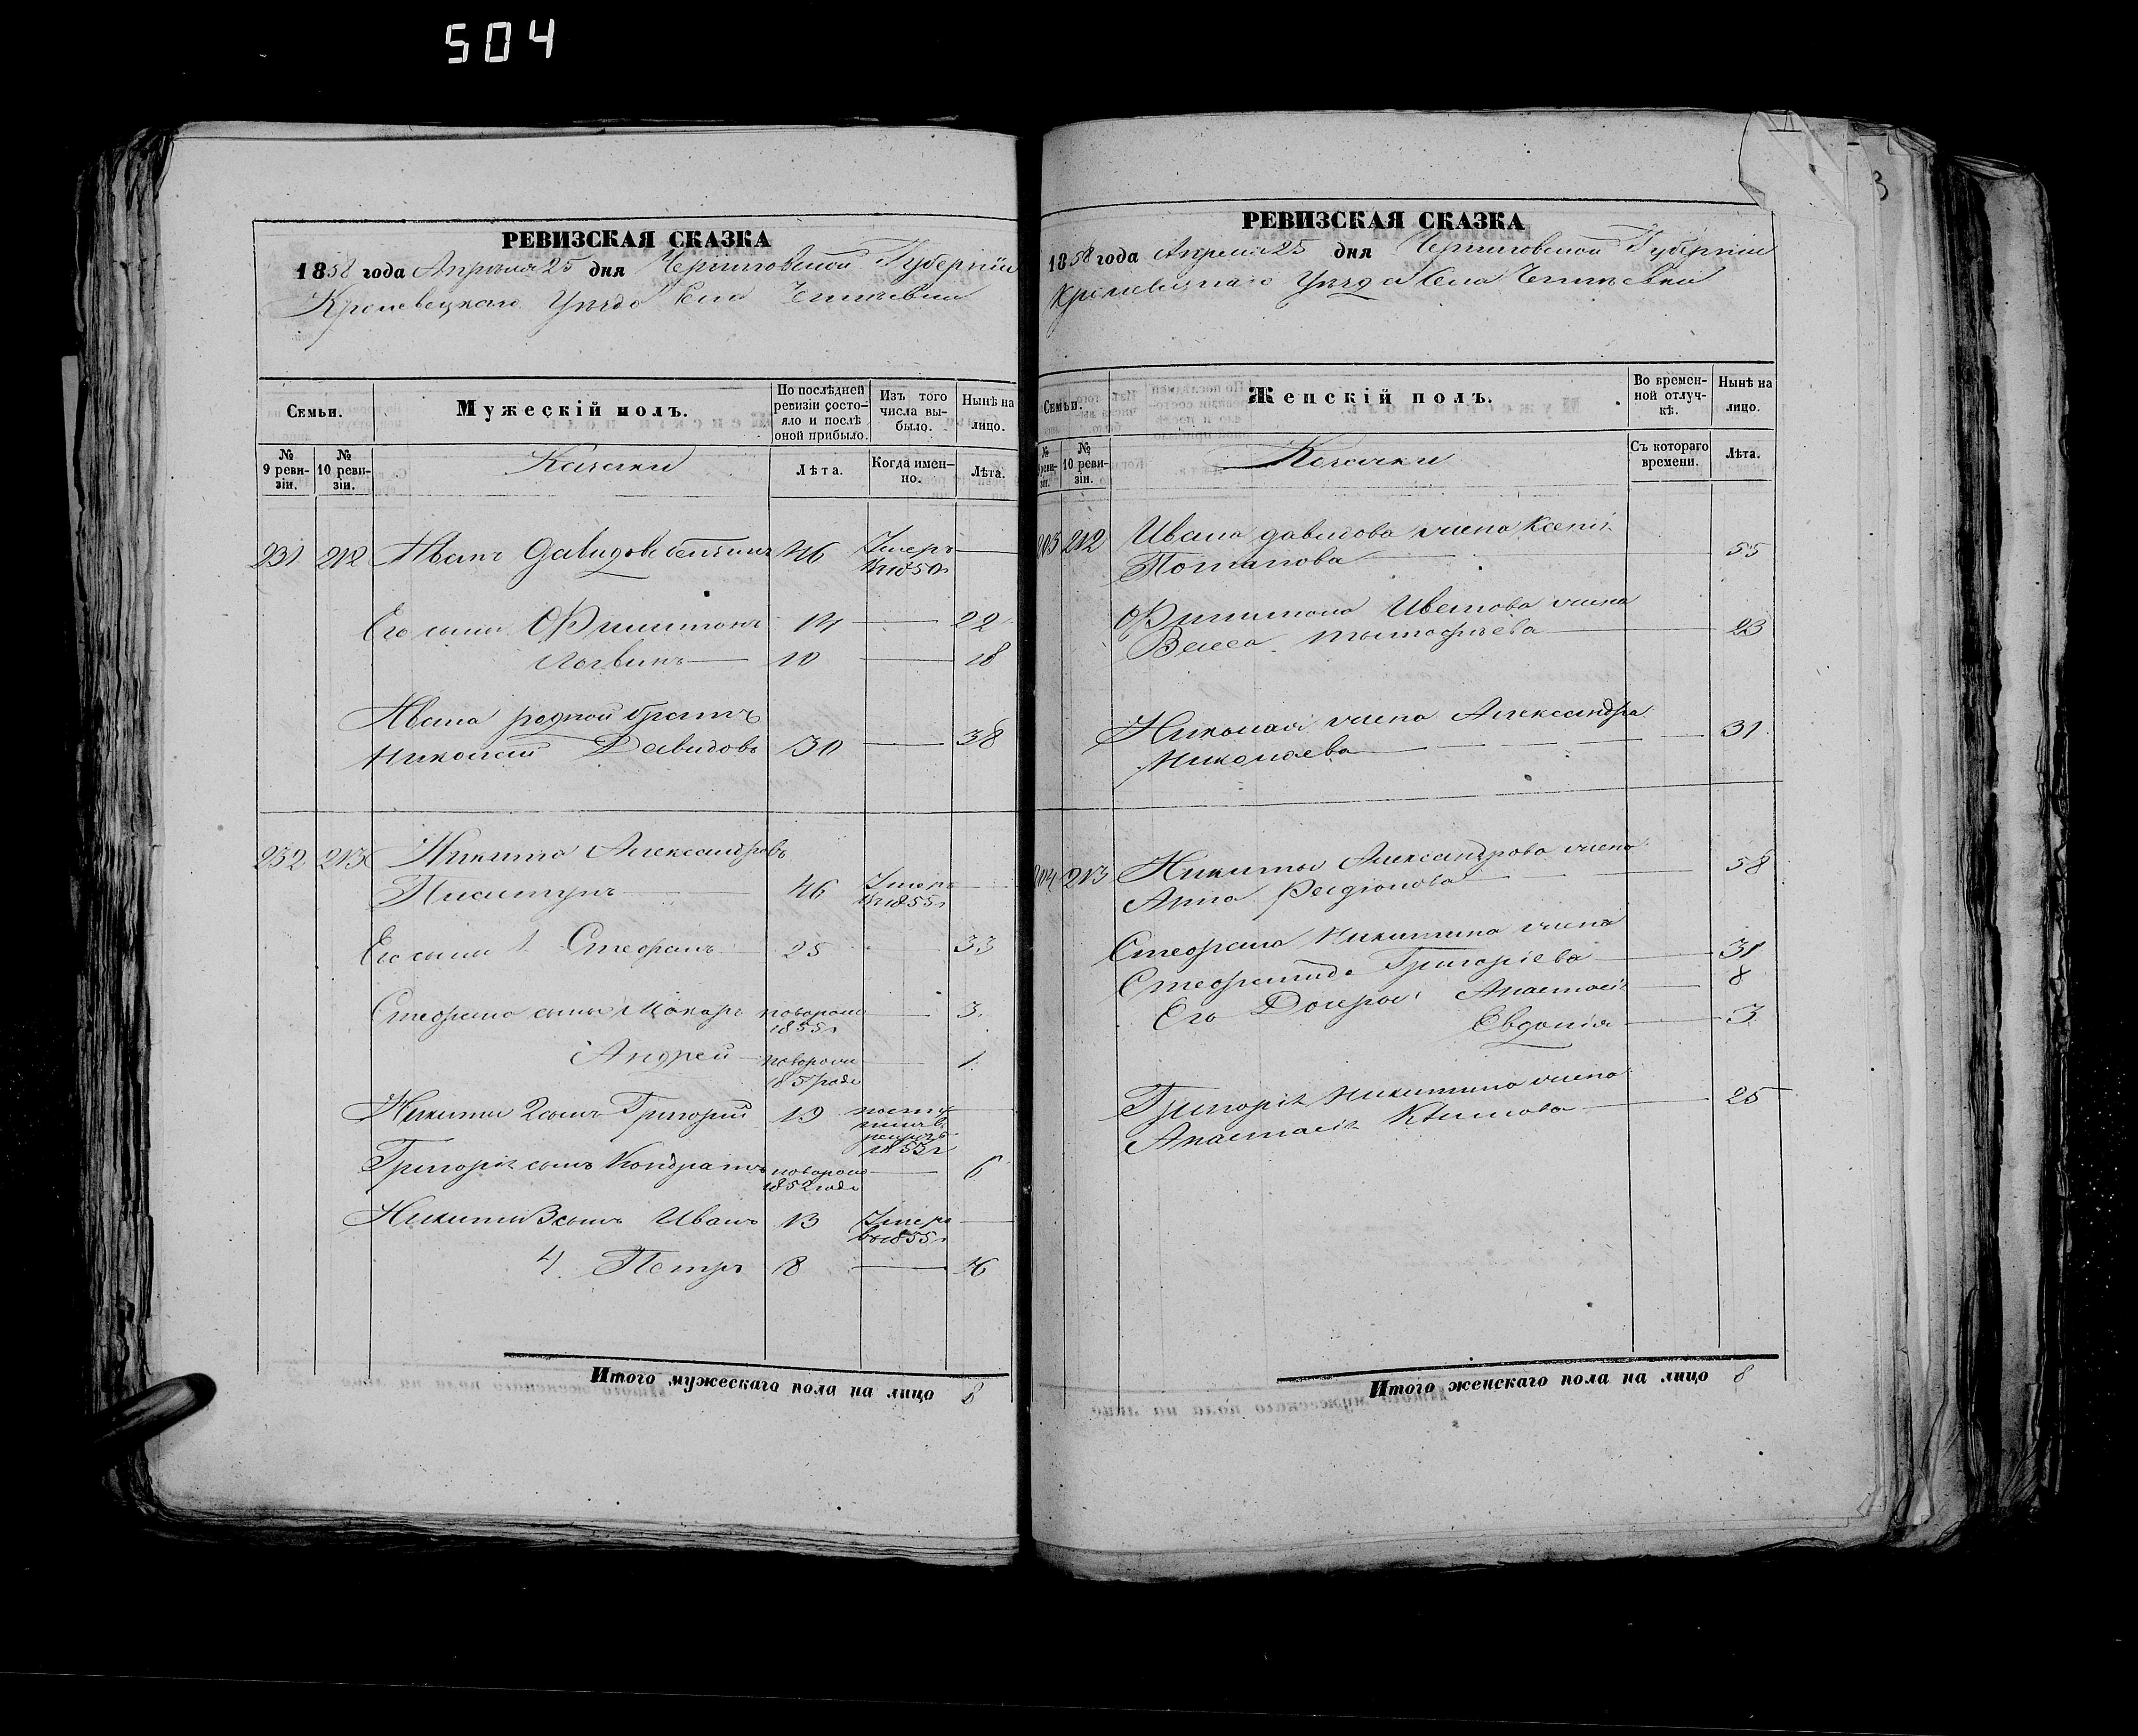 504
РЕВИЗСКАЯ СКАЗКА
1858 года Апреля 25 дня Черниговской Губерніи
Кролевецкаго Уезда Села
Семьи.
Мужескій полъ.
По послѣдней ревизіи состо-
яло и послѣ
оной прибыло.
Изъ того
числа вы-
было.
Нынѣ на
лицо.
№
9 реви-
зіи.
№
10 реви-
зіи.
Козаки
Лѣта.
Когда имен-
но.
Лѣта.
231 212 Иванъ Давидовъ 46 Умеръ
въ 1850г
Его сыны Филимонъ 14 22
Логвинъ 10 18
Ивана родной братъ
Николай Давидовъ 30 38
232 213 Никита Александровъ
46 Умеръ
въ 1855г
Его сыны 1 Стефанъ 25 33
Стефана сыны Макаръ новорож 3
1855г
Андрей новорож 1
1857 года
Никиты 2 сынъ Григорій 19
1853г
Григорія сынъ Кондратъ новорож 6
1852 года
Никиты 3 сынъ Иванъ 13 Умеръ
въ 1855г
4. Петръ 8 16
Итого мужескаго пола на лицо 8
3
РЕВИЗСКАЯ СКАЗКА
1858 года Апреля 25 дня Черниговской Губерніи
Кролевецкаго Уезда Села
Семьи.
Женскій полъ.
Во времен-
ной отлуч-
кѣ.
Нынѣ на
лицо.
№
реви-
зіи.
№
10 реви-
зіи.
Козачки
Съ котораго
времени.
Лѣта.
203 212 Ивана Давидова жена Ксенія
Потапова 55
Филимона Иванова жена
Васса Тимофѣева 23
Николая жена Александра
Николаева 31
204 213 Никиты Александрова жена 58
Анна Родіонова
Стефана Никитина жена
Стефанида Григоріева 31
Его Дочери Анастасія 8
Евдокія 3
Григорія Никитина жена
Анастасія 25
Итого женскаго пола на лицо 8